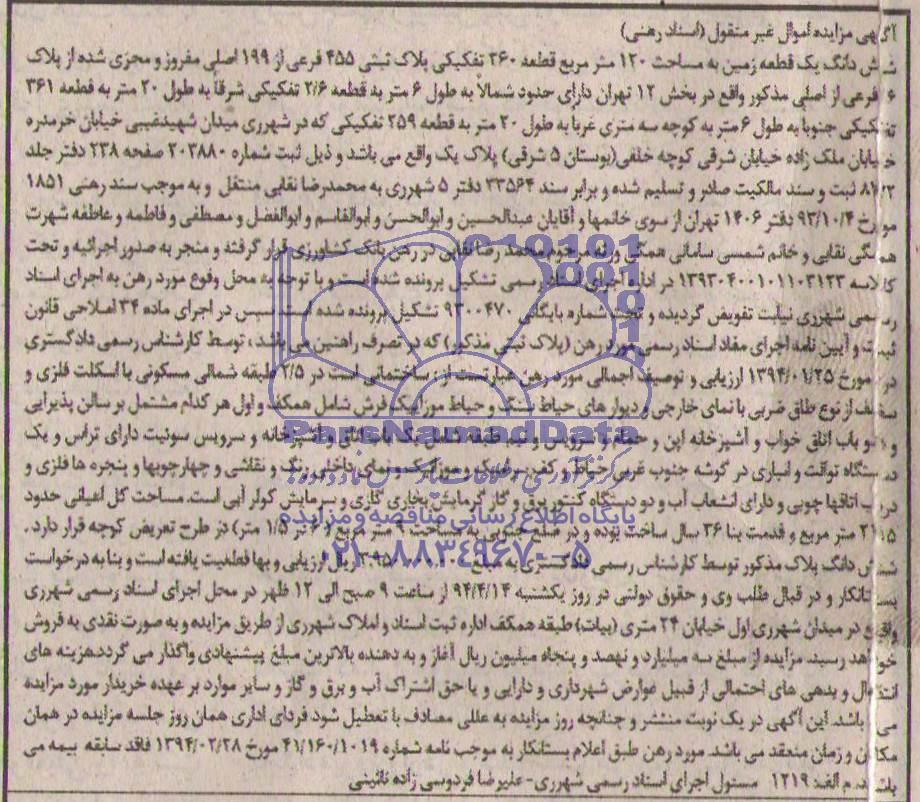 آگهی مزایده اموال غیر منقول (اسناد رهنی)
شش دانگ یک قطعه زمین به مساحت ۱۲۰ متر مربع قطعه ۲۶۰ تفکیکی پلاک ثبتی ۴۵۵ فرعی از ۱۹۹ اصلی مفروز و مجزی شده از پلاک
۶ فرعی از اصلی مذکور واقع در بخش ۱۲ تهران دارای حدود شمالاً به طول ۶ متر به قطعه ۲/۶ تفکیکی شرقاً به طول ۲۰ متر به قطعه ۳۶۱
تفکیکی جنوبا به طول ۶ متر به کوچه سه متری غربا به طول ۲۰ متر به قطعه ۲۵۹ تفکیکی که در شهرری میدان شهیدغیبی خیابان خرمدره
خیابان ملک زاده خیابان شرقی کوچه خلفی(بوستان ۵ شرقی) پلاک یک واقع می باشد و ذیل ثبت شماره ۲۰۳۸۸۰ صفحه ۲۳۸ دفتر جلد
ثبت و سند مالکیت صادر و تسلیم شده و برابر سند ۳۳۵۶۴ دفتر ۵ شهرری به محمدرضا نقابی منتقل و به موجب سند رهنی ۱۸۵۱
مورخ ۹۳/۱۰/۴ دفتر ۱۴۰۶ تهران از سوی خانمها و آقایان عبدالحسین و ابوالحسن و ابوالقاسم و ابوالفضل و مصطفی و فاطمه و عاطفه شهرت
همگی نقابی و خانم شمسی سامانی همگی ورثه مرحوم محمد رضا نقابی در رهن بانک کشاورزی قرار گرفته و منجر به صدور اجرائیه و تحت
کلاسه ۱۳۹۳۰۴۰۰۱۰۱۱۰۳۱۲۳ در اداره اجرای اسناد رسمی تشکیل پرونده شده است و با توجه به محل وقوع مورد رهن به اجرای اسناد
رسمی شهرری نیابت تفویض گردیده و تحت شماره بایگانی ۹۳۰۰۴۷۰ تشکیل پرونده شده است سپس در اجرای ماده ۳۴ اصلاحی قانون
ثبت و آیین نامه اجرای مفاد اسناد رسمی مورد رهن (پلاک ثبتی مذکور) که در تصرف راهنین می باشد، توسط کارشناس رسمی دادگستری
در مورخ ۱۳۹۴/۰۱/۲۵ ارزیابی و توصیف اجمالی مورد رهن عبارتست از: ساختمانی است در ۲/۵ طبقه شمالی مسکونی با اسکلت فلزی و
سقف از نوع طاق ضربی با نمای خارجی و دیوار های حیاط سنگ و حیاط موزاییک فرش شامل همکف و اول هر کدام مشتمل بر سالن پذیرایی
و دو باب اتاق خواب و آشپزخانه اپن و حمام و سرویس و نیم طبقه شامل یک باب اتاق و آشپزخانه و سرویس سوئیت دارای تراس و یک
دستگاه توالت و انباری در گوشه جنوب غربی حیاط و کفپوش و موزاییک و نمای داخلی رنگ و نقاشی و چهارچوبها و پنجره ها فلزی و
درب اتاقها چوبی و دارای انشعاب آب و دو دستگاه کنتور برق و گاز گرمایش بخاری گازی و سرمایش کولر آبی است. مساحت کل اعیانی حدود
متر مربع و قدمت بنا ۳۶ سال ساخت بوده و در ضلع جنوبی به مساحت ۹ متر مربع (۶ در ۱/۵ متر) در طرح تعریض کوچه قرار دارد.
شش دانگ پلاک مذکور توسط کارشناس رسمی دادگستری به مبلغ ریال ارزیابی و بها قطعیت یافته است و بنا به درخواست
بستانکار و در قبال طلب وی و حقوق دولتی در روز یکشنبه ۹۴/۴/۱۴ از ساعت ۹ صبح الی ۱۲ ظهر در محل اجرای اسناد رسمی شهرری
واقع در میدان شهرری اول خیابان ۲۴ متری (بیات) طبقه همکف اداره ثبت اسناد و املاک شهرری از طریق مزایده و به صورت نقدی به فروش
خواهد رسید. مزایده از مبلغ سه میلیارد و نهصد و پنجاه میلیون ریال آغاز و به دهنده بالاترین مبلغ پیشنهادی واگذار می گردد.هزینه های
انتقال و بدهی های احتمالی از قبیل عوارض شهرداری و دارایی و یا حق اشتراک آب و برق و گاز و سایر موارد بر عهده خریدار مورد مزایده
می باشد. این آگهی در یک نوبت منتشر و چنانچه روز مزایده به عللی مصادف با تعطیل شود فردای اداری همان روز جلسه مزایده در همان
مکان و زمان منعقد می باشد. مورد رهن طبق اعلام بستانکار به موجب نامه شماره ۴۱/۱۶۰/۱۰۱۹ مورخ ۱۳۹۴/۰۲/۲۸ فاقد سابقه بیمه می
باشد. م الف: ۱۲۱۹ مسئول اجرای اسناد رسمی شهرری- علیرضا فردوسی زاده نائینی
ParsNamadData
پایگاه اطلاع رسانی مناقصه و مزایده
۰۲۱-۸۸۳۴۹۶۷۰-۵